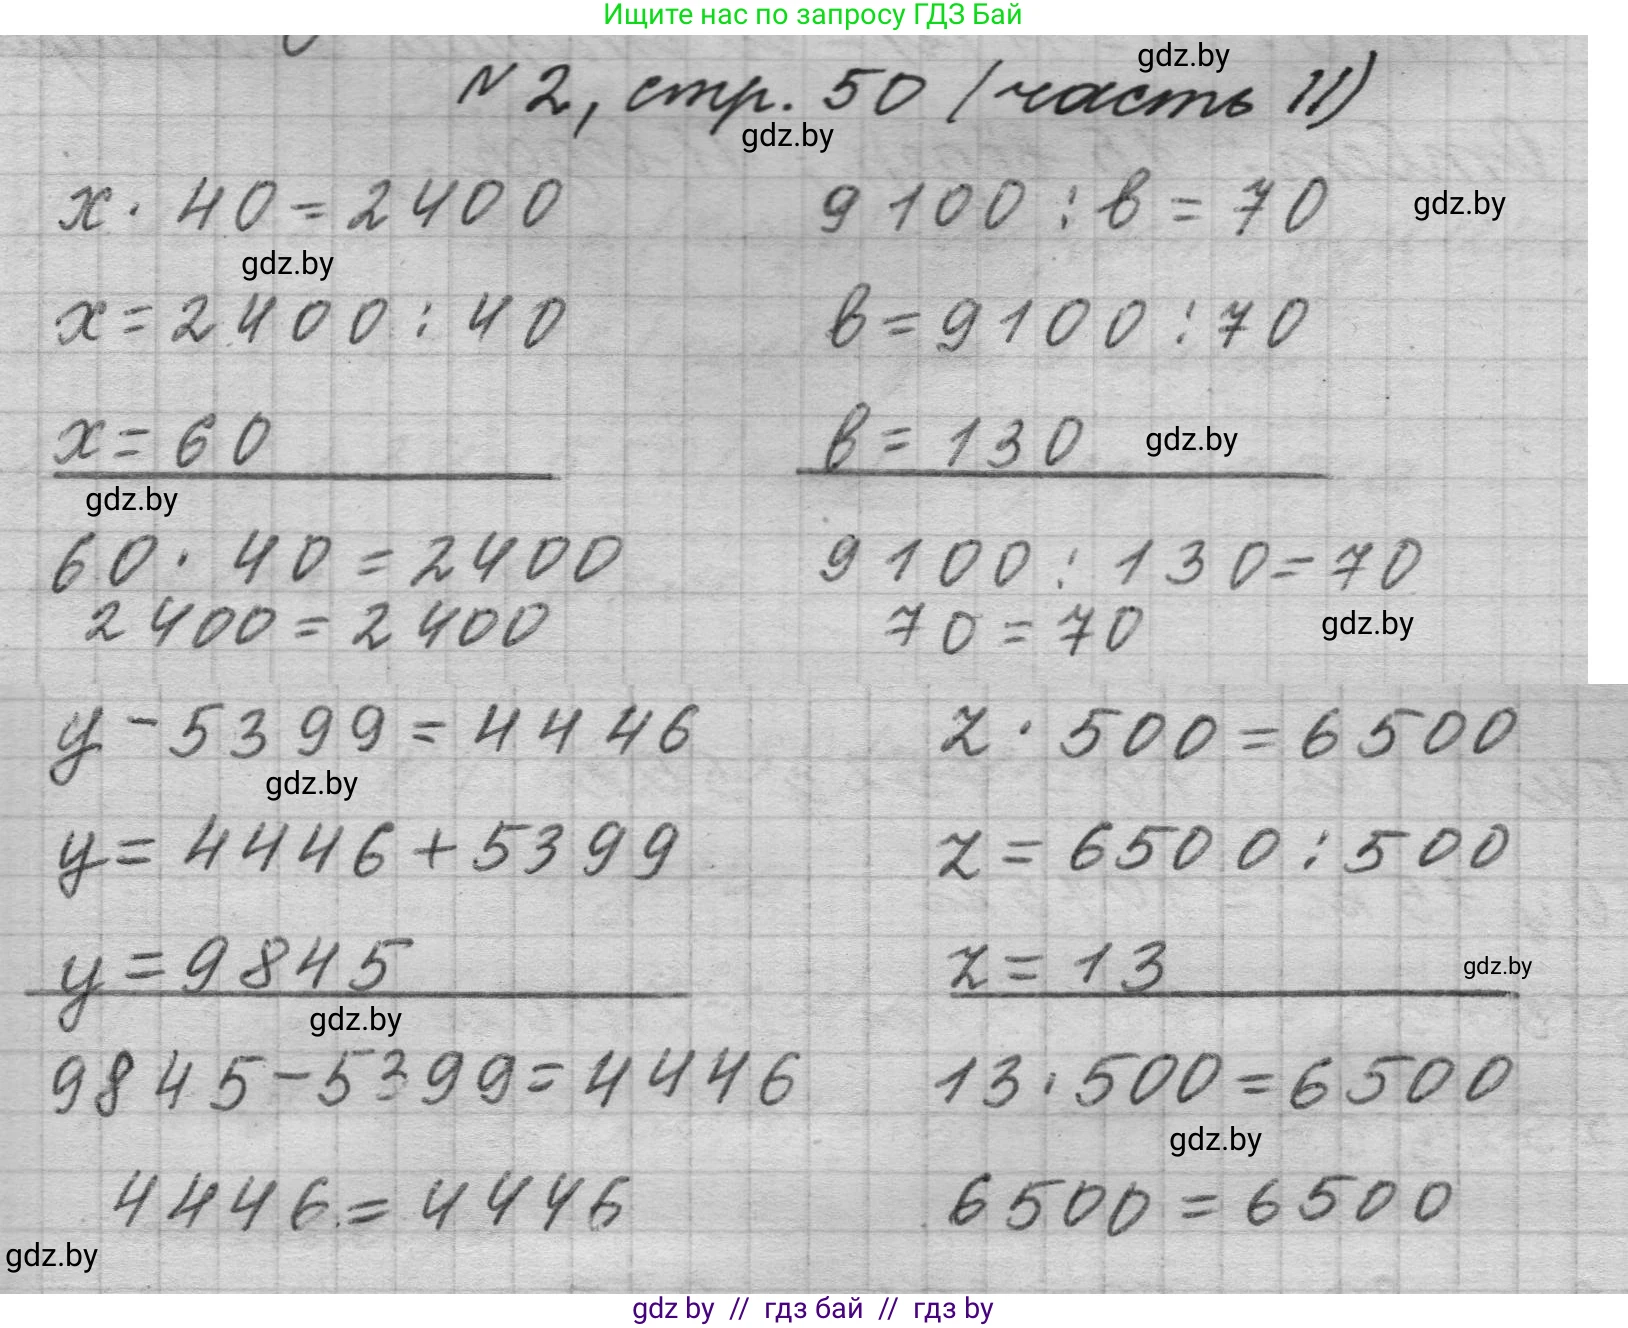 Ищите нас по запросу ГДЗ Бай
gdz.by
N 2, стр. 50 (часть II)
gdz.by
x · 40 = 2400
9100 : в = 70
gdz.by
gdz.by
x = 2400 : 40
в = 9100 : 70
x = 60
в = 130
gdz.by
gdz.by
60 · 40 = 2400
9100 : 130 = 70
2400 = 2400
70 = 70
gdz.by
y - 5399 = 4446
z · 500 = 6500
gdz.by
y = 4446 + 5399
z = 6500 : 500
y = 9845
z = 13
gdz.by
gdz.by
9845 - 5399 = 4446
13 · 500 = 6500
gdz.by
4446 = 4446
6500 = 6500
gdz.by
gdz by // гдз бай // гдз by